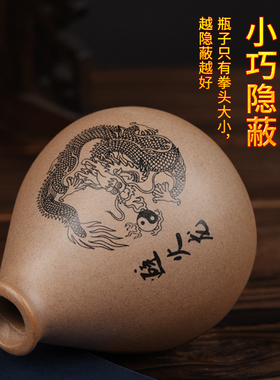 小巧隐蔽
瓶子只有拳头大小，
越隐蔽越好
火龙